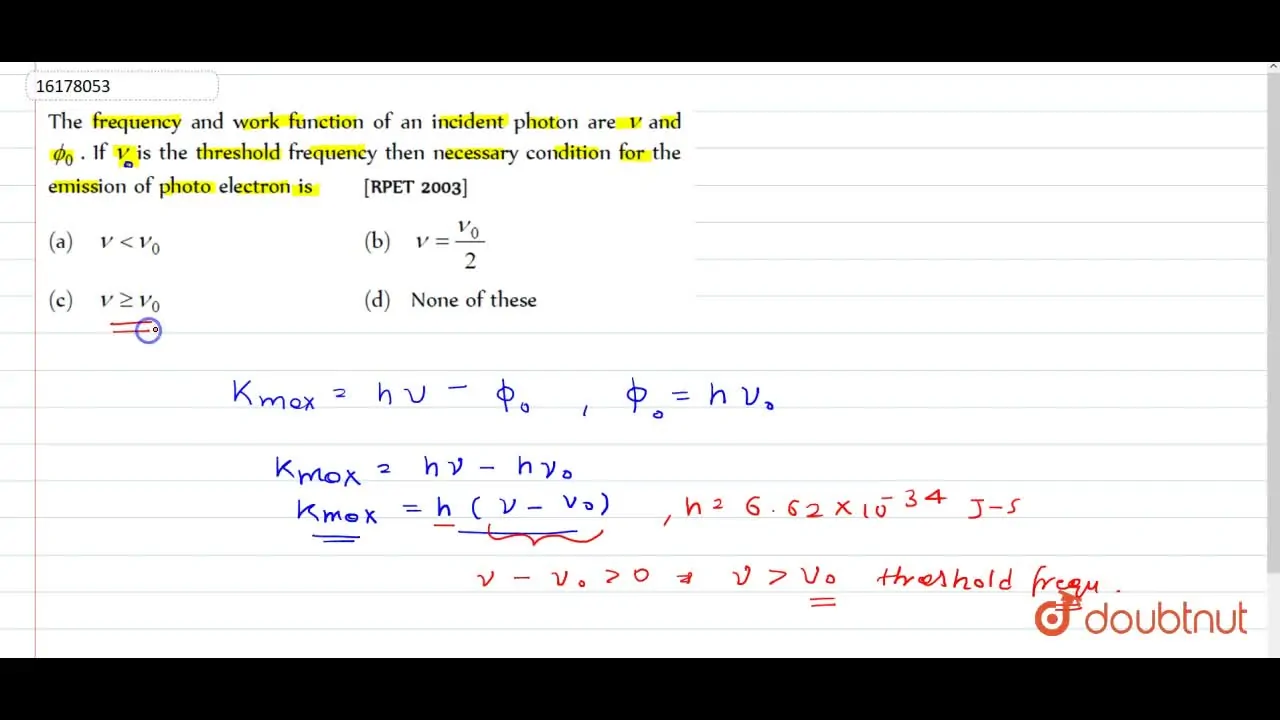 16178053
The frequency and work function of an incident photon are ν and
ϕ₀ . If ν₀ is the threshold frequency then necessary condition for the
emission of photo electron is [RPET 2003]
(a) ν < ν₀ (b) ν = ν₀/2
(c) ν ≥ ν₀ (d) None of these
Kmax = hν − ϕ₀ , ϕ₀ = hν₀
Kmax = hν − hν₀
Kmax = h (ν − ν₀) , h = 6.62 × 10⁻³⁴ J-S
ν − ν₀ > 0 ⇒ ν > ν₀ threshold frequ.
doubtnut